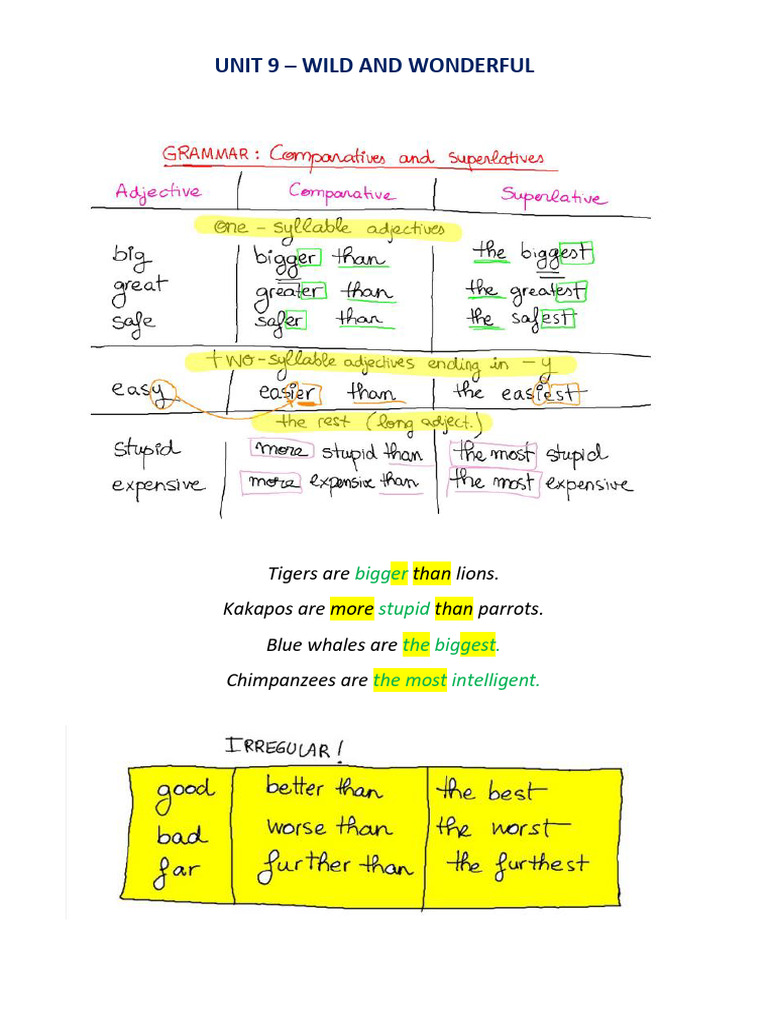 UNIT 9 – WILD AND WONDERFUL
GRAMMAR: Comparatives and superlatives
Adjective Comparative Superlative
one-syllable adjectives
big bigger than the biggest
great greater than the greatest
safe safer than the safest
two-syllable adjectives ending in -y
easy easier than the easiest
the rest (long adject.)
stupid more stupid than the most stupid
expensive more expensive than the most expensive
Tigers are bigger than lions.
Kakapos are more stupid than parrots.
Blue whales are the biggest.
Chimpanzees are the most intelligent.
IRREGULAR!
good better than the best
bad worse than the worst
far further than the furthest